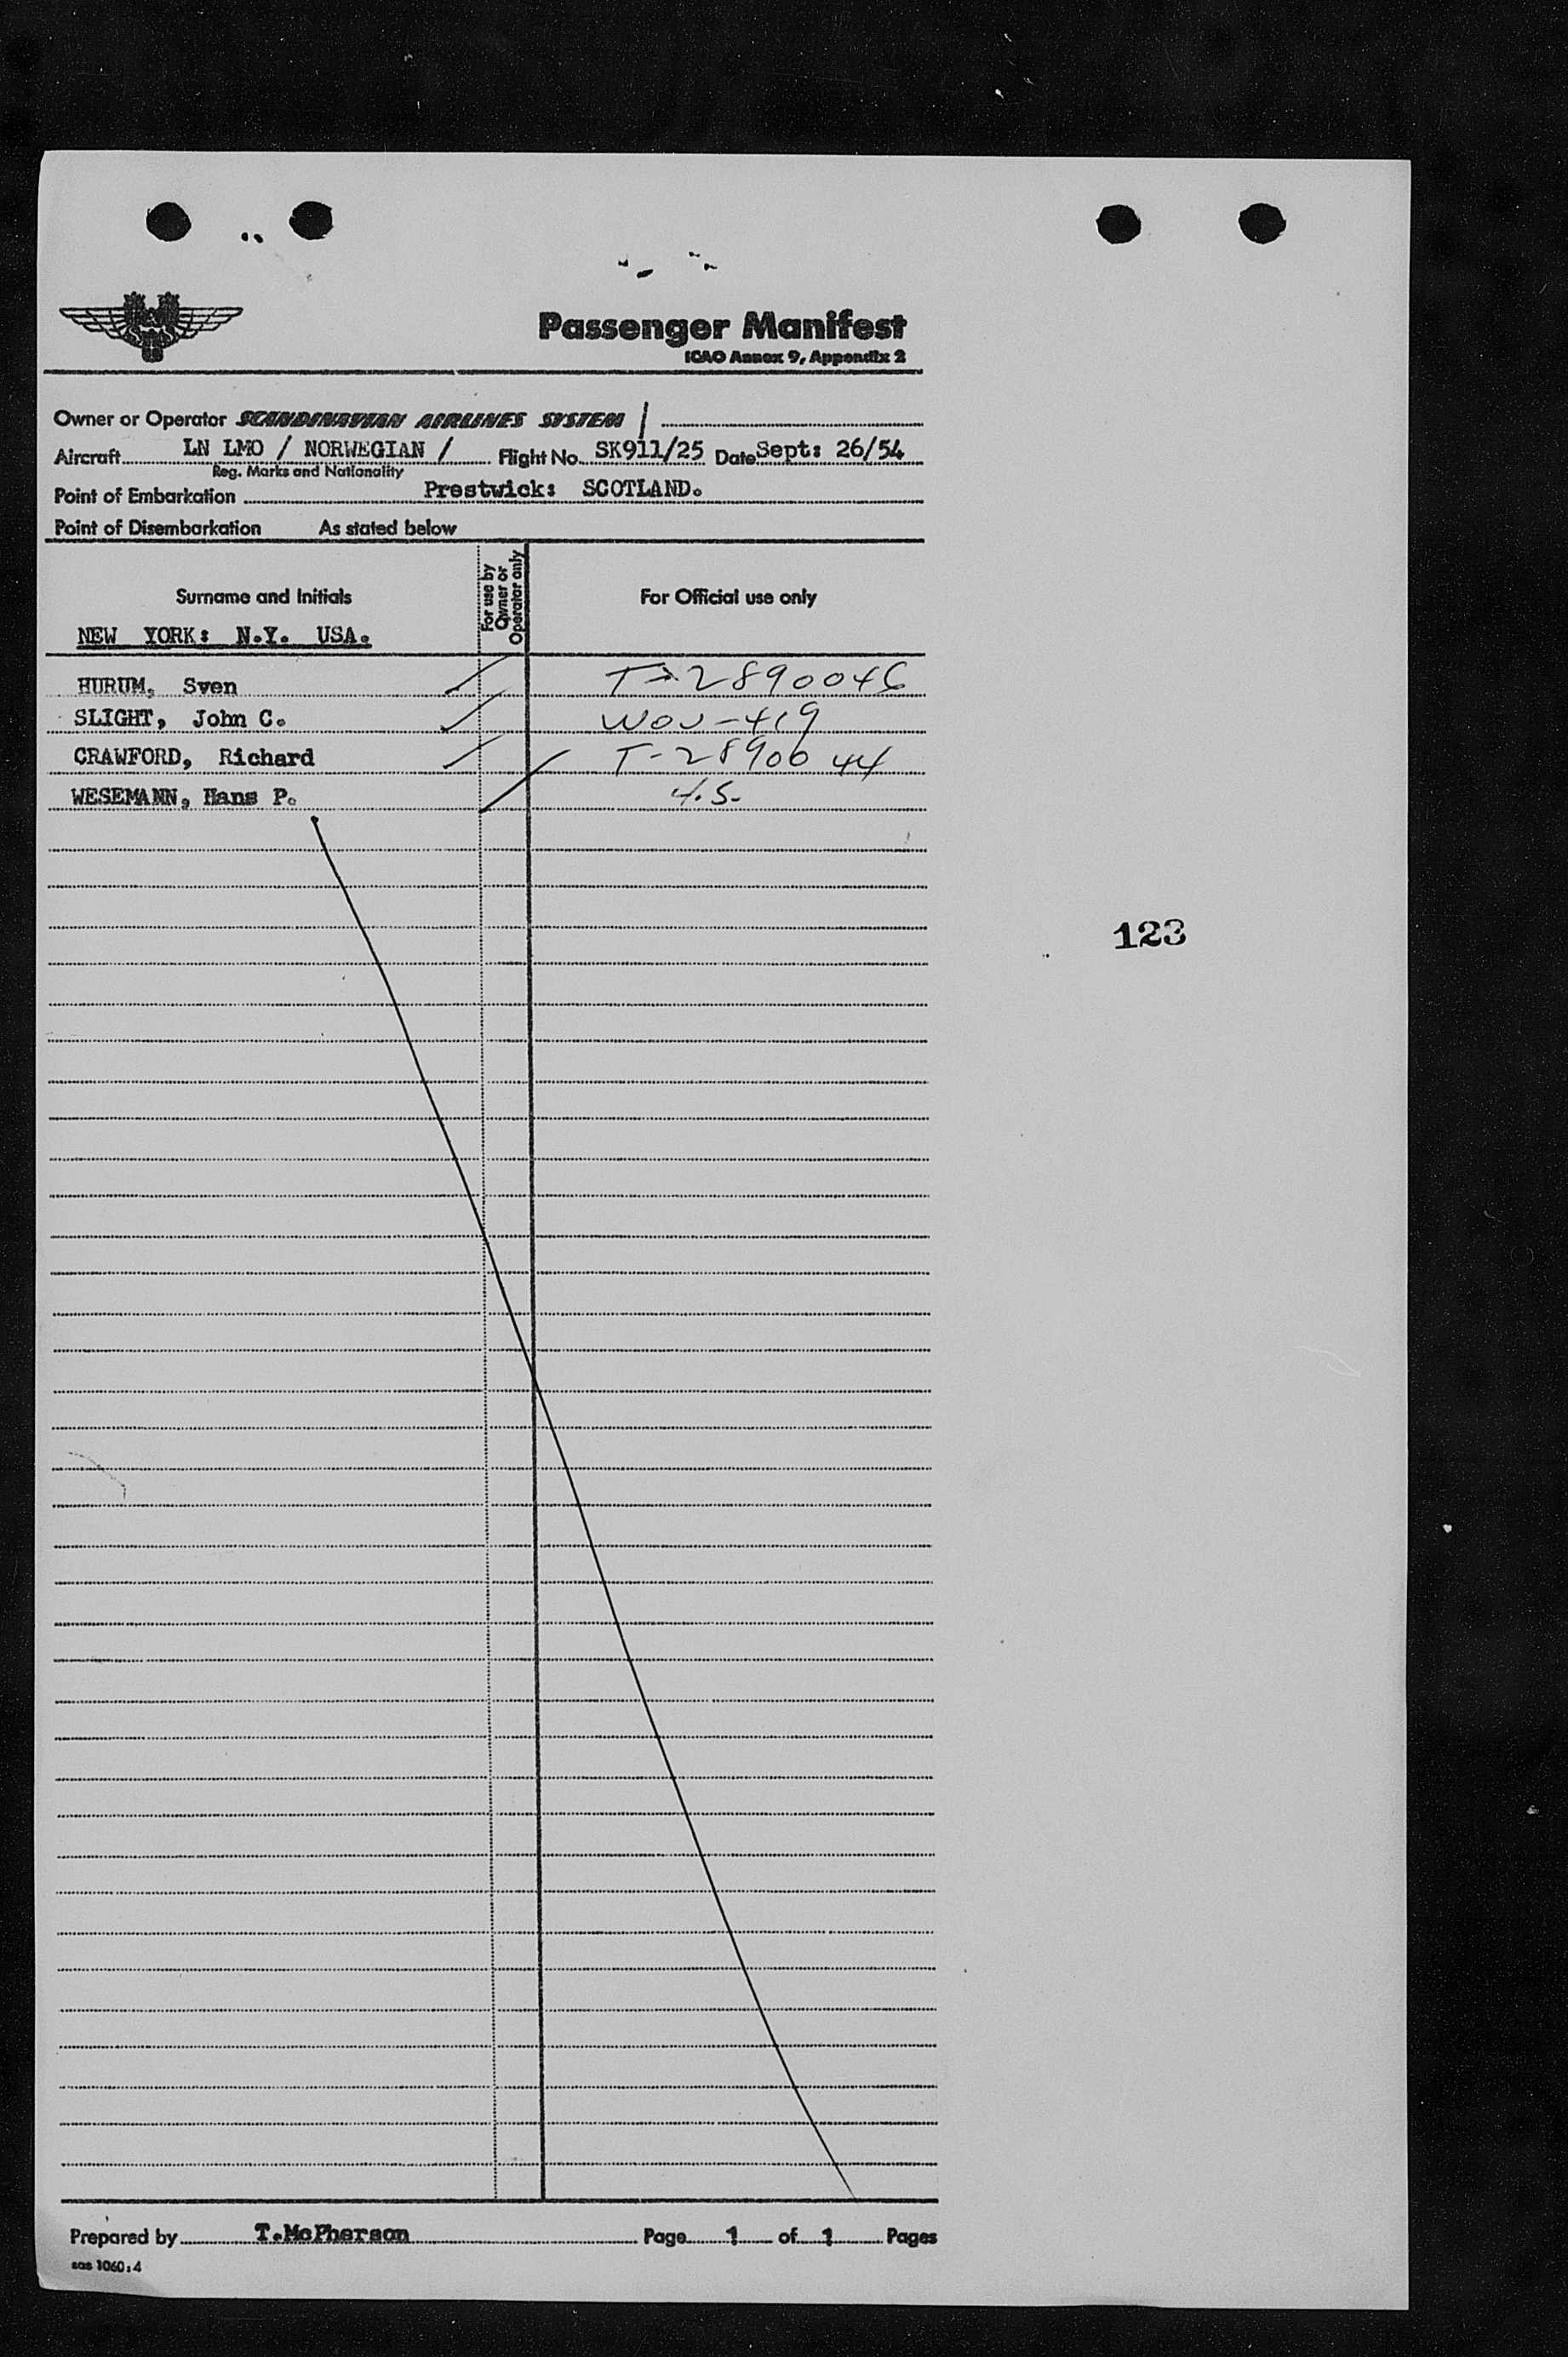 Passenger Manifest
ICAO Annex 9, Appendix 2
Owner or Operator SCANDINAVIAN AIRLINES SYSTEM /
Aircraft LN LMO / NORWEGIAN / Flight No. SK911/25 Date Sept: 26/54
Reg. Marks and Nationality
Point of Embarkation Prestwick: SCOTLAND.
Point of Disembarkation As stated below
Surname and Initials For use by Owner or Operator only For Official use only
NEW YORK: N.Y. USA.
HURUM, Sven T-2890046
SLIGHT, John C. WOU-419
CRAWFORD, Richard T-2890044
WESEMANN, Hans P. U.S.
123
Prepared by T.McPherson Page 1 of 1 Pages
sas 1060:4